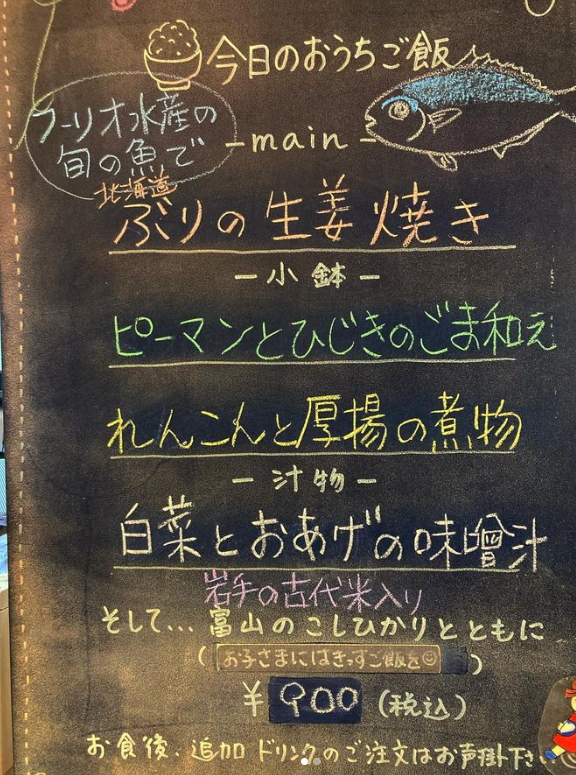 今日のおうちご飯
フーリオ水産の
旬の魚で
-main-
北海道
ぶりの生姜焼き
-小鉢-
ピーマンとひじきのごま和え
れんこんと厚揚の煮物
-汁物-
白菜とおあげの味噌汁
岩手の古代米入り
そして...富山のこしひかりとともに
(お子さまにはきっずご飯を☺)
¥900(税込)
お食後、追加ドリンクのご注文はお声掛下さい